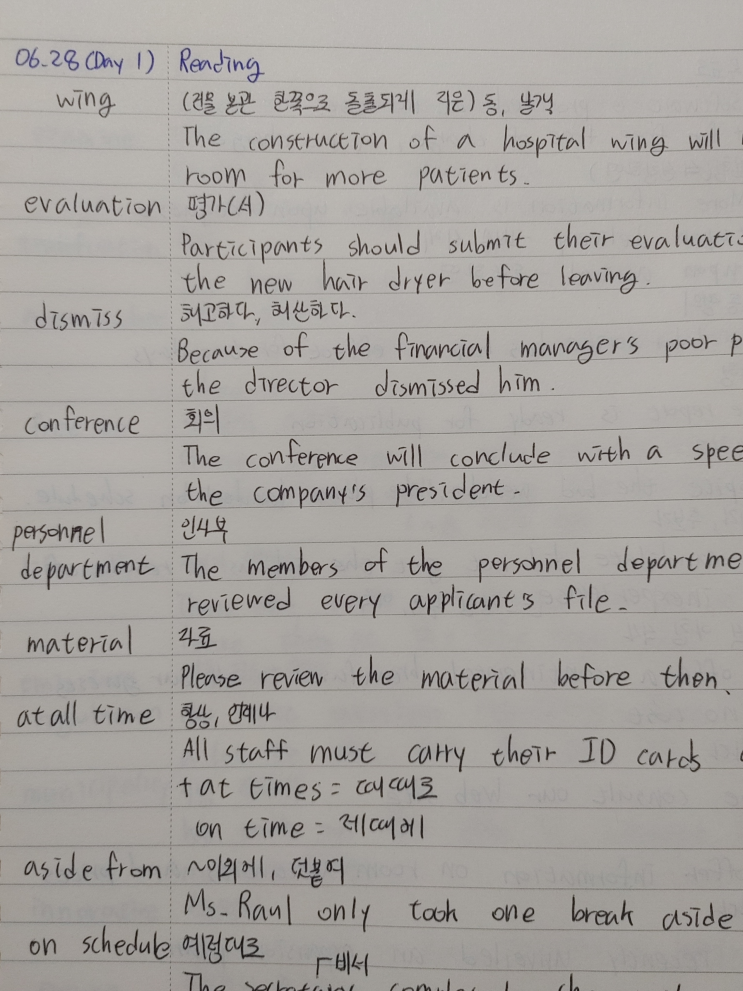 06.28 (Day 1) Reading
wing (건물 본관 한쪽으로 돌출되게 지은) 동, 날개
The construction of a hospital wing will
room for more patients.
evaluation 평가(서)
Participants should submit their evaluatio
the new hair dryer before leaving.
dismiss 해고하다, 해산하다.
Because of the financial manager's poor p
the director dismissed him.
conference 회의
The conference will conclude with a spee
the company's president.
personnel 인사부
department The members of the personnel departme
reviewed every applicant's file.
material 자료
Please review the material before then.
at all time 항상, 언제나
All staff must carry their ID cards
+ at times = 때때로
on time = 제때에
aside from ~이외에, 덧붙여
Ms. Raul only took one break aside
on schedule 예정대로
비서
The